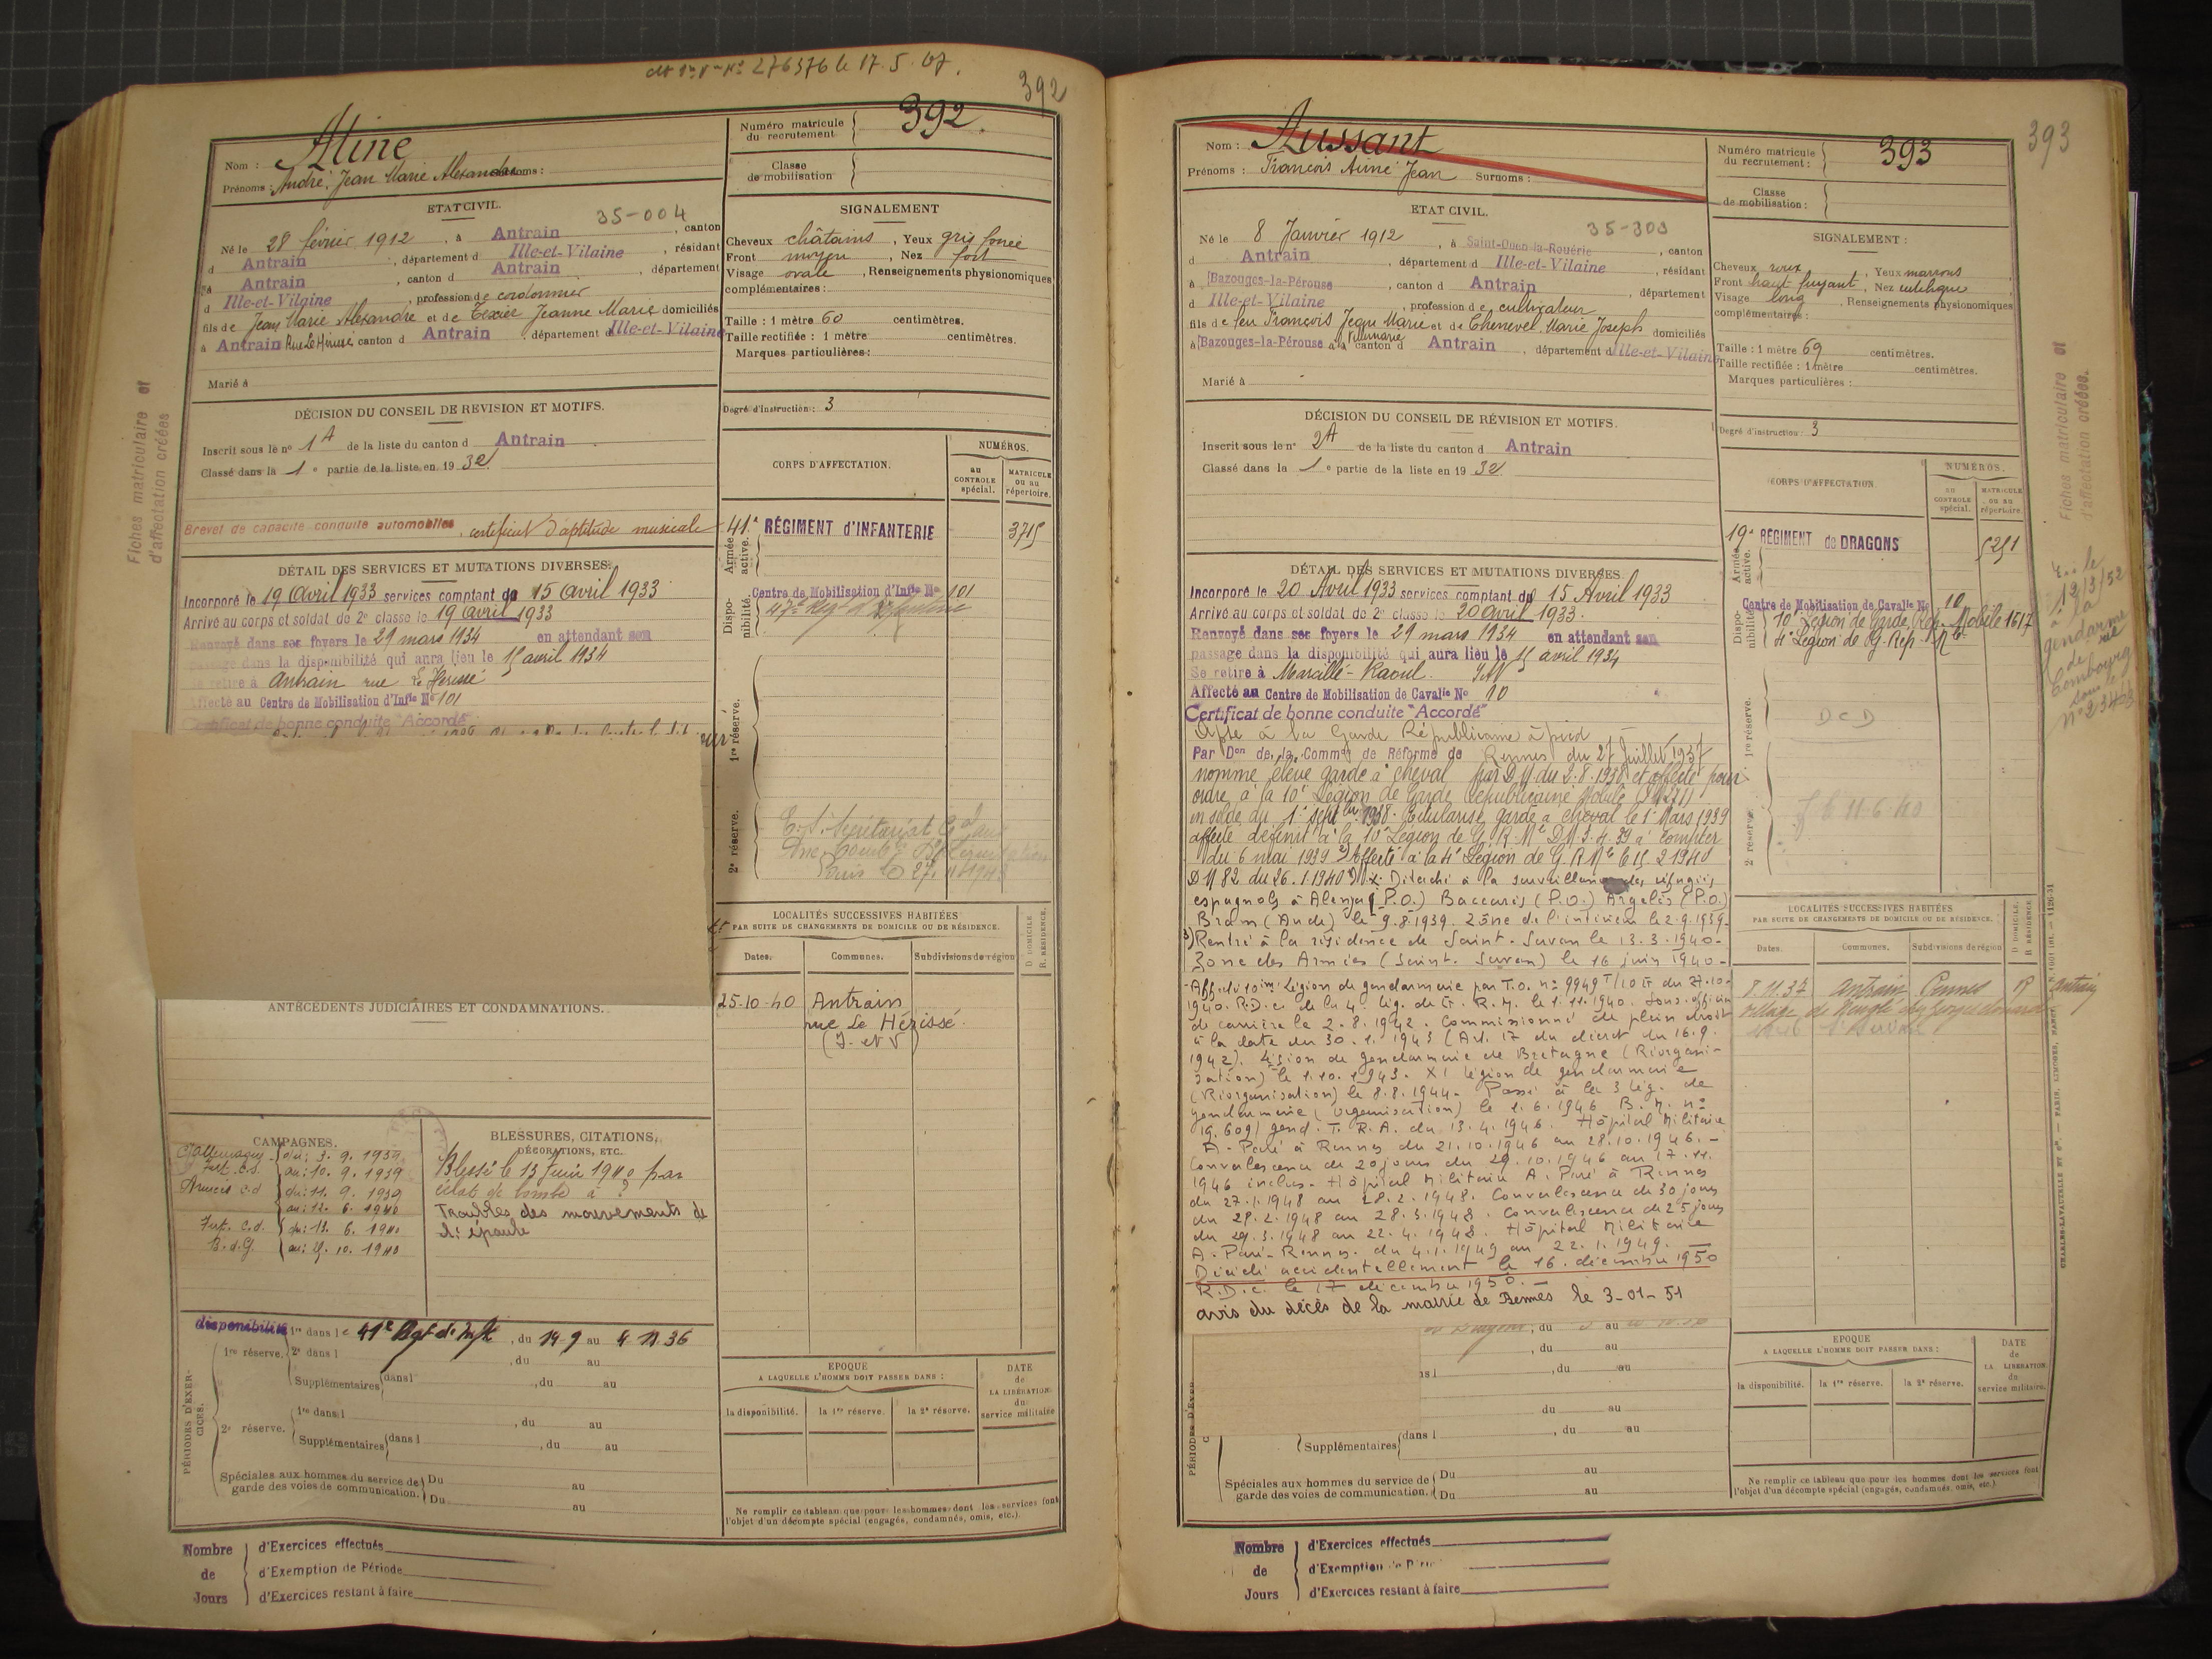 276376 le 17.5.67.
392
Nom : Aline
Prénoms : André, Jean Marie Alexandre
Numéro matricule du recrutement 392.
Classe de mobilisation
ETAT CIVIL.
35-004
Né le 28 février 1912, à Antrain, canton
d Antrain, département d Ille-et-Vilaine, résidant
à Antrain, canton d Antrain, département
d Ille-et-Vilaine, profession de cordonnier
fils de Jean Marie Alexandre et de Texier Jeanne Marie domiciliés
à Antrain Rue Le Hérissé canton d Antrain, département d Ille-et-Vilaine
Marié à
SIGNALEMENT
Cheveux châtains, Yeux gris foncé
Front moyen, Nez fort
Visage ovale, Renseignements physionomiques
complémentaires :
Taille : 1 mètre 60 centimètres.
Taille rectifiée : 1 mètre centimètres.
Marques particulières :
Degré d'instruction : 3
DÉCISION DU CONSEIL DE REVISION ET MOTIFS.
Inscrit sous le n° 1A de la liste du canton d Antrain
Classé dans la 1e partie de la liste en 1932
Brevet de capacité conduite automobiles, certificat d'aptitude musicale
Fiches matriculaire et
d'affectation créées
CORPS D'AFFECTATION.
NUMÉROS.
au CONTROLE spécial.
MATRICULE ou au répertoire.
Armée active.
41e RÉGIMENT d'INFANTERIE 3715
Disponibilité.
Centre de Mobilisation d'Infie No 101
1re réserve.
2e réserve.
DÉTAIL DES SERVICES ET MUTATIONS DIVERSES.
Incorporé le 19 Avril 1933 services comptant du 15 Avril 1933
Arrivé au corps et soldat de 2e classe le 19 avril 1933
Renvoyé dans ses foyers le 29 mars 1934 en attendant son
passage dans la disponibilité qui aura lieu le 15 avril 1934
Se retire à Antrain rue Le Hérissé
Affecté au Centre de Mobilisation d'Infie No 101
Certificat de bonne conduite "Accordé"
ANTÉCÉDENTS JUDICIAIRES ET CONDAMNATIONS.
LOCALITÉS SUCCESSIVES HABITÉES
PAR SUITE DE CHANGEMENTS DE DOMICILE OU DE RÉSIDENCE.
D. DOMICILE.
R. RÉSIDENCE.
Dates. Communes. Subdivisions de région
25-10-40 Antrain
rue Le Hérissé.
(I. et V)
CAMPAGNES.
C/ Allemagne
du: 3. 9. 1939
au: 10. 9. 1939
Armées c.d du: 11. 9. 1939
au: 12. 6. 1940
c.d. du: 13. 6. 1940
B.d.G. au: 10. 1940
BLESSURES, CITATIONS,
DÉCORATIONS, ETC.
Blessé le 13 Juin 1940 par
éclat de bombe à ?
Troubles des mouvements de
l'épaule
PÉRIODES D'EXERCICES.
disponibilité
1re réserve.
1re dans le 41e Rgt d'Infie, du 14-9 au 4.11.36
2e dans l , du au
Supplémentaires dans l , du au
2e réserve.
1re dans l , du au
Supplémentaires dans l , du au
Spéciales aux hommes du service de garde des voies de communication. Du au
Du au
EPOQUE
A LAQUELLE L'HOMME DOIT PASSER DANS :
la disponibilité. la 1re réserve. la 2e réserve.
DATE de LA LIBÉRATION du service militaire
Ne remplir ce tableau que pour les hommes dont les services font
l'objet d'un décompte spécial (engagés, condamnés, omis, etc.)
Nombre de Jours
d'Exercices effectués
d'Exemption de Période
d'Exercices restant à faire
393
Nom : Aussant
Prénoms : François Aimé Jean Surnoms :
Numéro matricule du recrutement : 393
Classe de mobilisation :
ETAT CIVIL.
35-303
Né le 8 Janvier 1912, à Saint-Ouen-la-Rouërie, canton
d Antrain, département d Ille-et-Vilaine, résidant
à Bazouges-la-Pérouse, canton d Antrain, département
d Ille-et-Vilaine, profession de cultivateur
fils de feu François Jean Marie et de Chenevel Marie Joseph domiciliés
à Bazouges-la-Pérouse canton d Antrain, département d Ille-et-Vilaine
Marié à
SIGNALEMENT :
Cheveux roux, Yeux marrons
Front haut fuyant, Nez
Visage long, Renseignements physionomiques
complémentaires :
Taille : 1 mètre 69 centimètres.
Taille rectifiée : 1 mètre centimètres.
Marques particulières :
Degré d'instruction : 3
DÉCISION DU CONSEIL DE RÉVISION ET MOTIFS.
Inscrit sous le n° 2A de la liste du canton d Antrain
Classé dans la 1e partie de la liste en 1932
Fiches matriculaire et
d'affectation créées.
CORPS D'AFFECTATION
NUMÉROS.
au CONTROLE spécial.
MATRICULE ou au répertoire.
Armée active.
19e RÉGIMENT de DRAGONS 5251
Disponibilité.
Centre de Mobilisation de Cavalie No 10
10e Légion de Garde Rép. Mobile 1617
4e Légion de G. Rép. Mle
12/3/52
à la
gendarmerie
de
Combourg
1re réserve.
DCD
2e réserve.
11-6-40
DÉTAIL DES SERVICES ET MUTATIONS DIVERSES
Incorporé le 20 Avril 1933 services comptant du 15 Avril 1933
Arrivé au corps et soldat de 2e classe le 20 avril 1933.
Renvoyé dans ses foyers le 29 mars 1934 en attendant son
passage dans la disponibilité qui aura lieu le 15 avril 1934
Se retire à Marcillé-Raoul. I&V
Affecté au Centre de Mobilisation de Cavalie No 10
Certificat de bonne conduite "Accordé"
Apte à la Garde Républicaine à pied
Par Don de la Common de Réforme de Rennes du 27 Juillet 1937
nommé élève garde à cheval par DM du 2.8.1938 et affecté pour
ordre à la 10e Légion de Garde Républicaine Mobile
en solde du 1er septbre 1938. Titularisé garde à cheval le 1er Mars 1939
affecté définit à la 10e Légion de G.R.Mle DM 3.4.39 à compter
du 6 mai 1939 Affecté à la 4e Légion de G R Mle le 15 2 1940
DM 82 du 26.1.1940 Détaché à la surveillance des réfugiés
espagnols à (P.O.) Baccarès (P.O.) Argelès (P.O.)
Bram (Aude) le 9.8.1939. Zône de l'intérieur le 2.9.1939-
3) Rentré à la résidence de Saint-Servan le 13.3.1940-
Zone des Armées (Saint-Servan) le 16 juin 1940-
- Affecté 10ème Légion de gendarmerie par T.O. n° 9949 T/10 G du 27.10.
1940. R.D.C. de la 4 lég. de G. R. M. le 1.11.1940. Sous-officier
de carrière le 2.8.1942. Commissionné de plein droit
à la date du 30.1.1943 (Art. 17 du décret du 16.9.
1942). Légion de gendarmerie de Bretagne (Réorgani-
sation) le 1.10.1943. XI légion de gendarmerie
(Réorganisation) le 8.8.1944. Passé à la 3 lég. de
gendarmerie (organisation) le 1.6.1946 B.M. n°
19.609/ gend. T.R.A. du 13.4.1946. Hôpital Militaire
A. Paré à Rennes du 21.10.1946 au 28.10.1946. -
Convalescence de 20 jours du 29.10.1946 au 17.11.
1946 inclus. Hôpital Militaire A. Paré à Rennes
du 27.1.1948 au 28.2.1948. Convalescence de 30 jours
du 28.2.1948 au 28.3.1948. Convalescence de 25 jours
du 29.3.1948 au 22.4.1948. Hôpital Militaire
A. Paré-Rennes. du 4.1.1949 au 22.1.1949. -
Décédé accidentellement le 16 décembre 1950
R.D.C. le 17 décembre 1950. -
avis du décès de la mairie de Rennes le 3-01-51
LOCALITÉS SUCCESSIVES HABITÉES
PAR SUITE DE CHANGEMENTS DE DOMICILE OU DE RÉSIDENCE.
D. DOMICILE.
R. RÉSIDENCE
Dates. Communes. Subdivisions de région
8.11.37 Antrain Rennes R
PÉRIODES D'EXER
, du au
, du au
du au
Supplémentaires dans l , du au
Spéciales aux hommes du service de garde des voies de communication. Du au
Du au
EPOQUE
A LAQUELLE L'HOMME DOIT PASSER DANS :
la disponibilité. la 1re réserve. la 2e réserve.
DATE de LA LIBERATION du service militaire.
Ne remplir ce tableau que pour les hommes dont les services font
l'objet d'un décompte spécial (engagés, condamnés, omis, etc.)
CHARLES-LAVAUZELLE ET Cie — PARIS, LIMOGES, NANCY
Nombre de Jours
d'Exercices effectués
d'Exemption
d'Exercices restant à faire